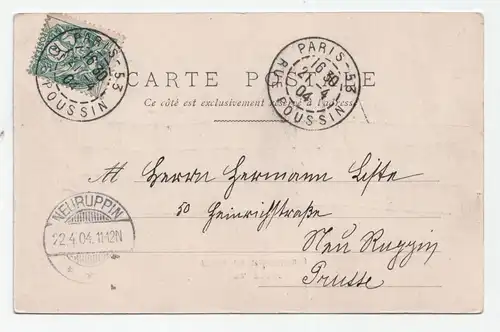 PARIS-53
16 30
RUE POUSSIN
PARIS-53
16 30
21-4
04
RUE POUSSIN
CARTE POSTALE
Ce côté est exclusivement réservé à l'adresse
M Herrn Hermann Liste
50 Heinrichstraße
Neu Ruppin
Prusse
NEURUPPIN
22.4.04.11-12N